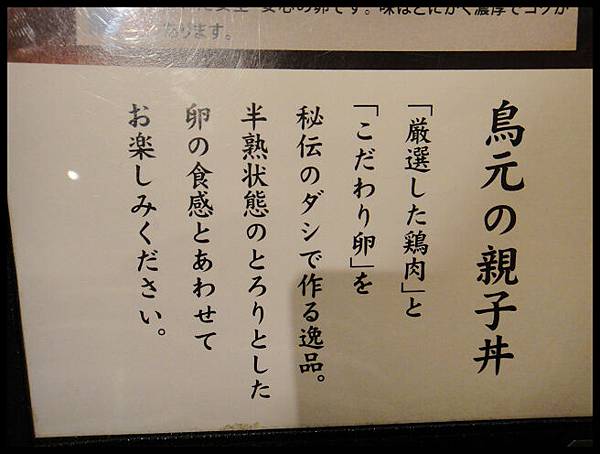 安心の卵です。味はとにかく濃厚でコクが
あります。
鳥元の親子丼
「厳選した鶏肉」と
「こだわり卵」を
秘伝のダシで作る逸品。
半熟状態のとろりとした
卵の食感とあわせて
お楽しみください。